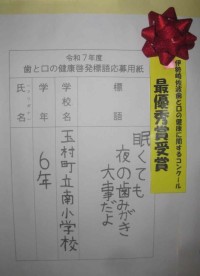 令和7年度
歯と口の健康啓発標語応募用紙
標語
眠くても
夜の歯みがき
大事だよ
学校名
玉村町立南小学校
学年
6年
氏名
伊勢崎佐波歯と口の健康に関するコンクール
最優秀賞受賞